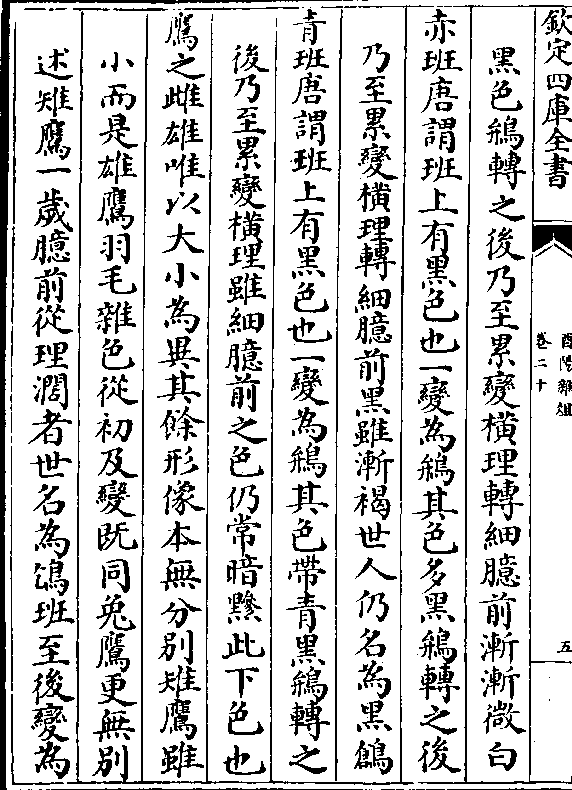 欽定四庫全書
酉陽雜俎
卷二十
五
黑色鵨轉之後乃至累變橫理轉細臆前漸漸微白
赤班唐謂班上有黑色也一變為鵨其色多黑鵨轉之後
乃至累變橫理轉細臆前黑雖漸褐世人仍名為黑鶬
青班唐謂班上有黑色也一變為鵨其色帶青黑鵨轉之
後乃至累變橫理雖細臆前之色仍常暗黲此下色也
鷹之雌雄唯以大小為異其餘形像本無分別雉鷹雖
小而是雄鷹羽毛雜色從初及變既同兔鷹更無別
述雉鷹一歲臆前從理濶者世名為鴿班至後變為